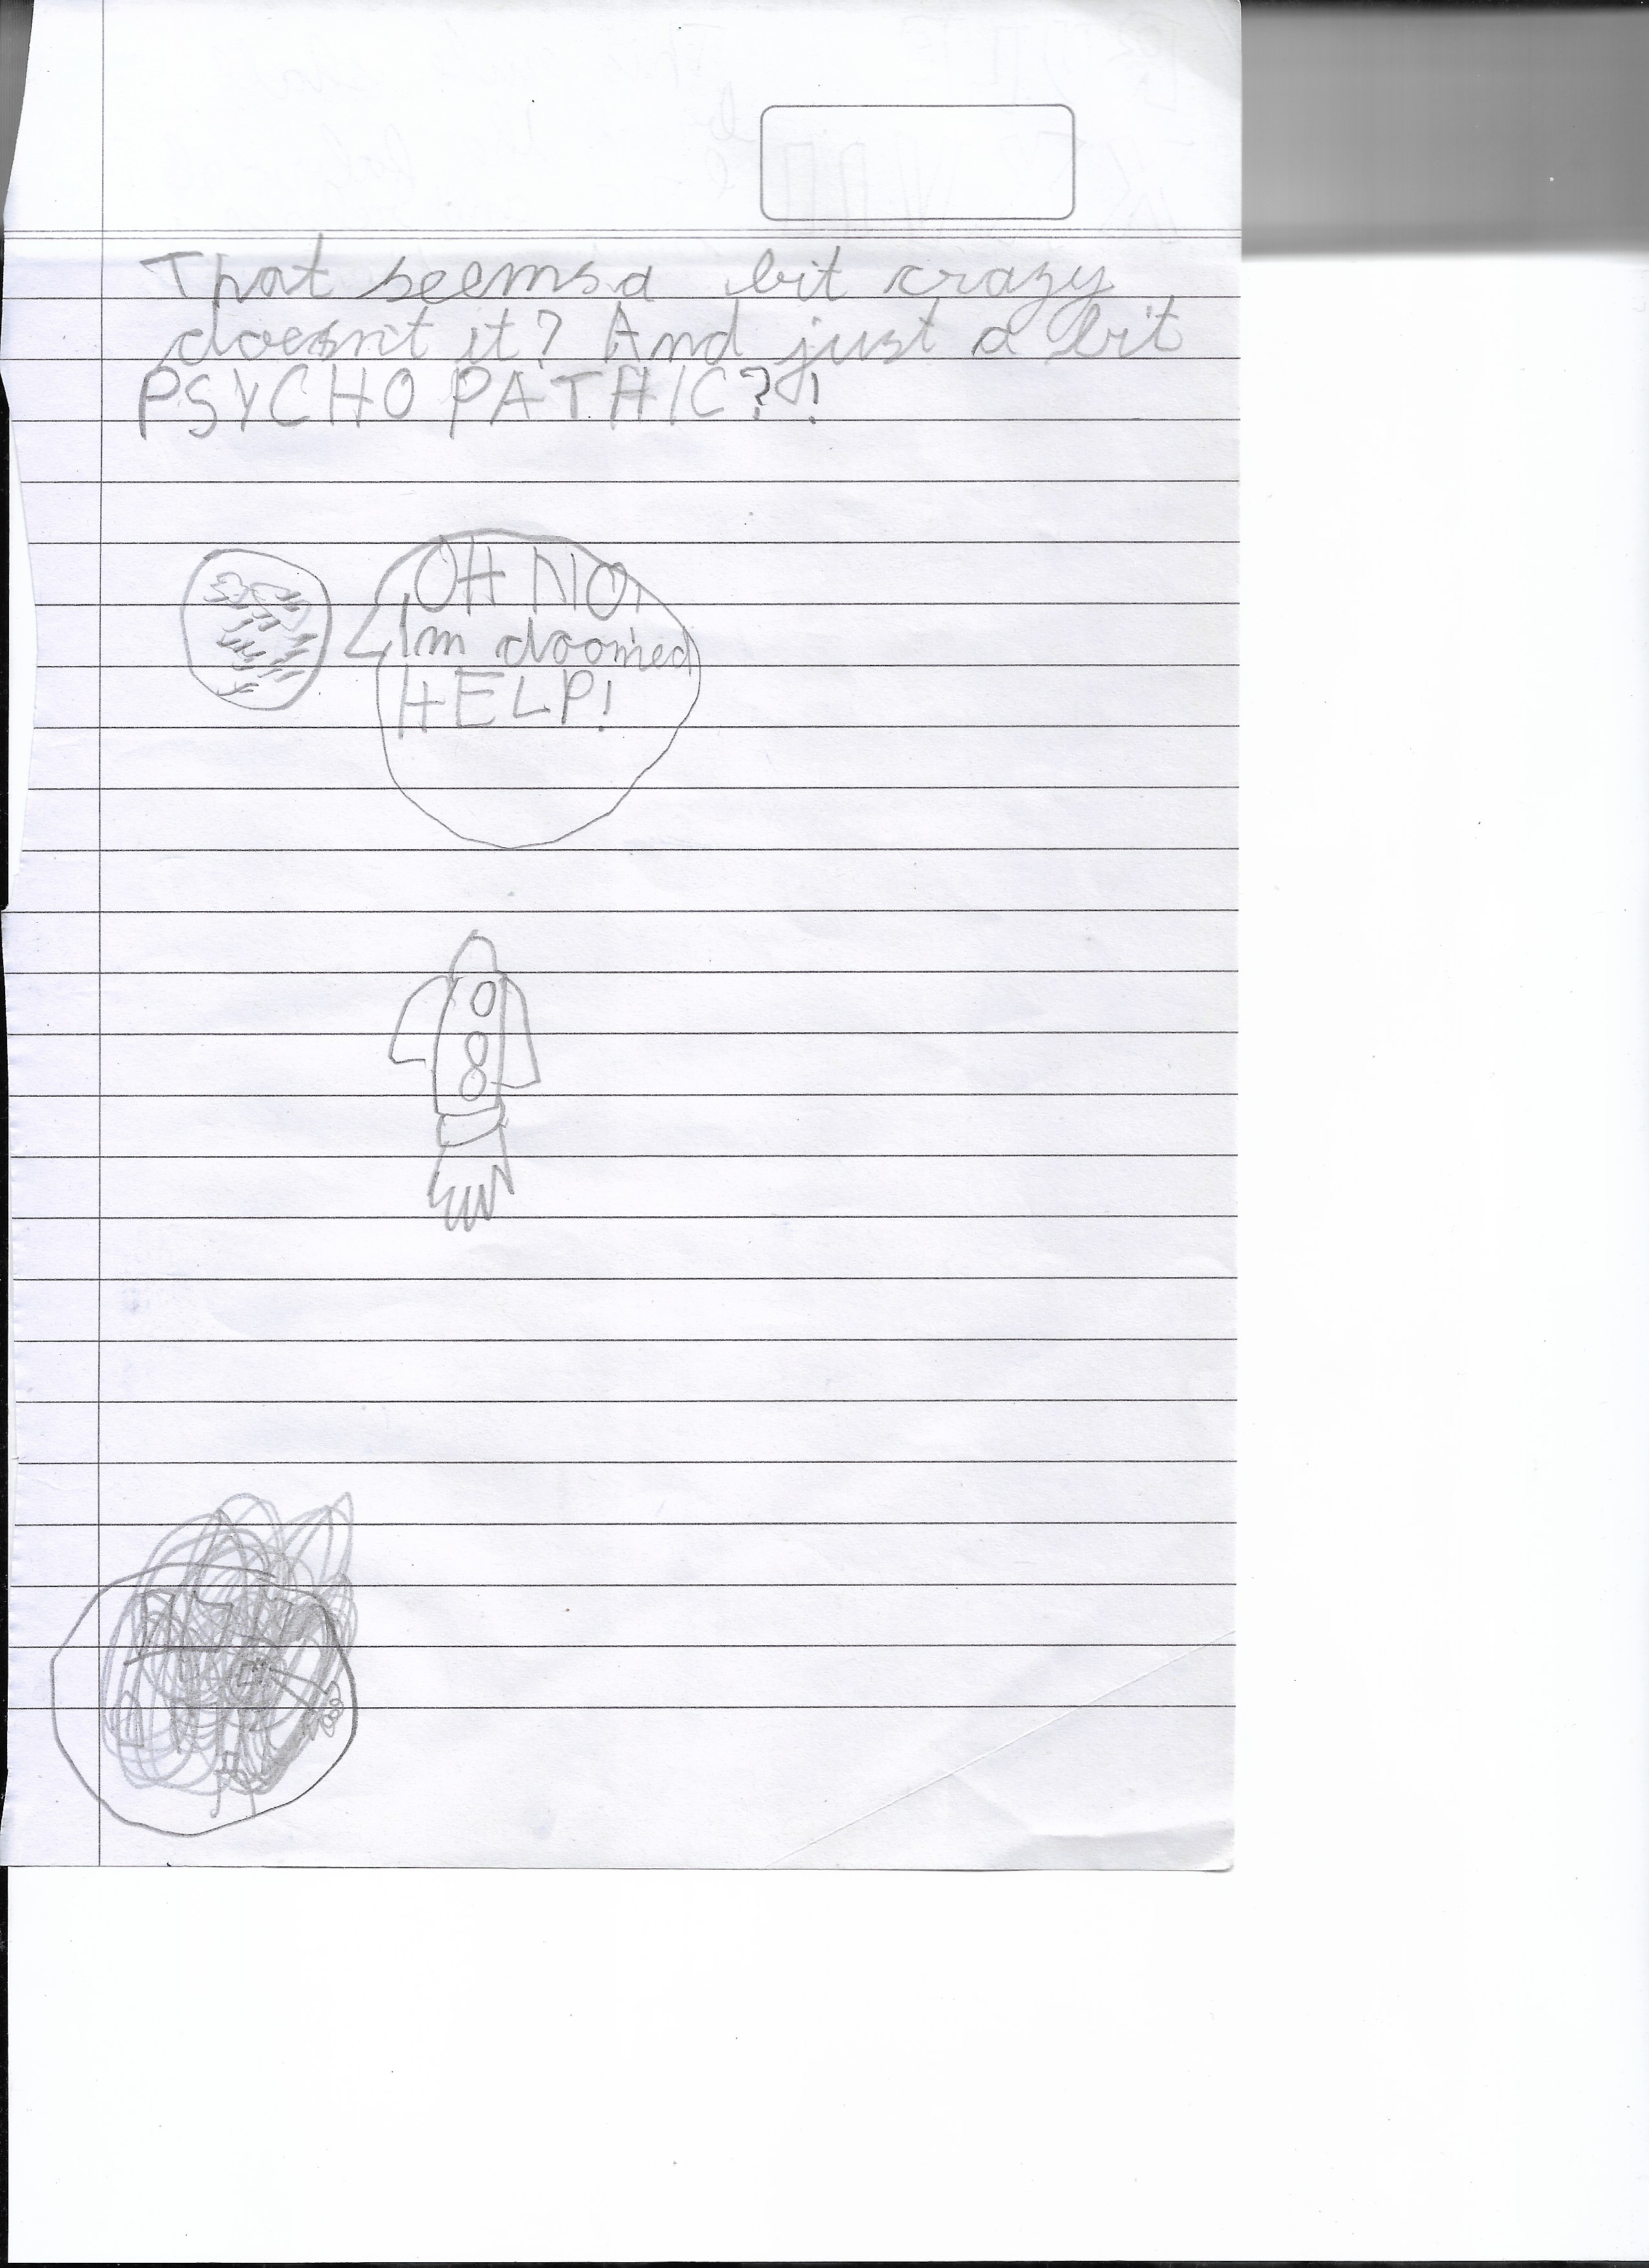 That seems a bit crazy
doesn't it? And just a bit
PSYCHOPATHIC?!
OH NO,
I'm doomed
HELP!